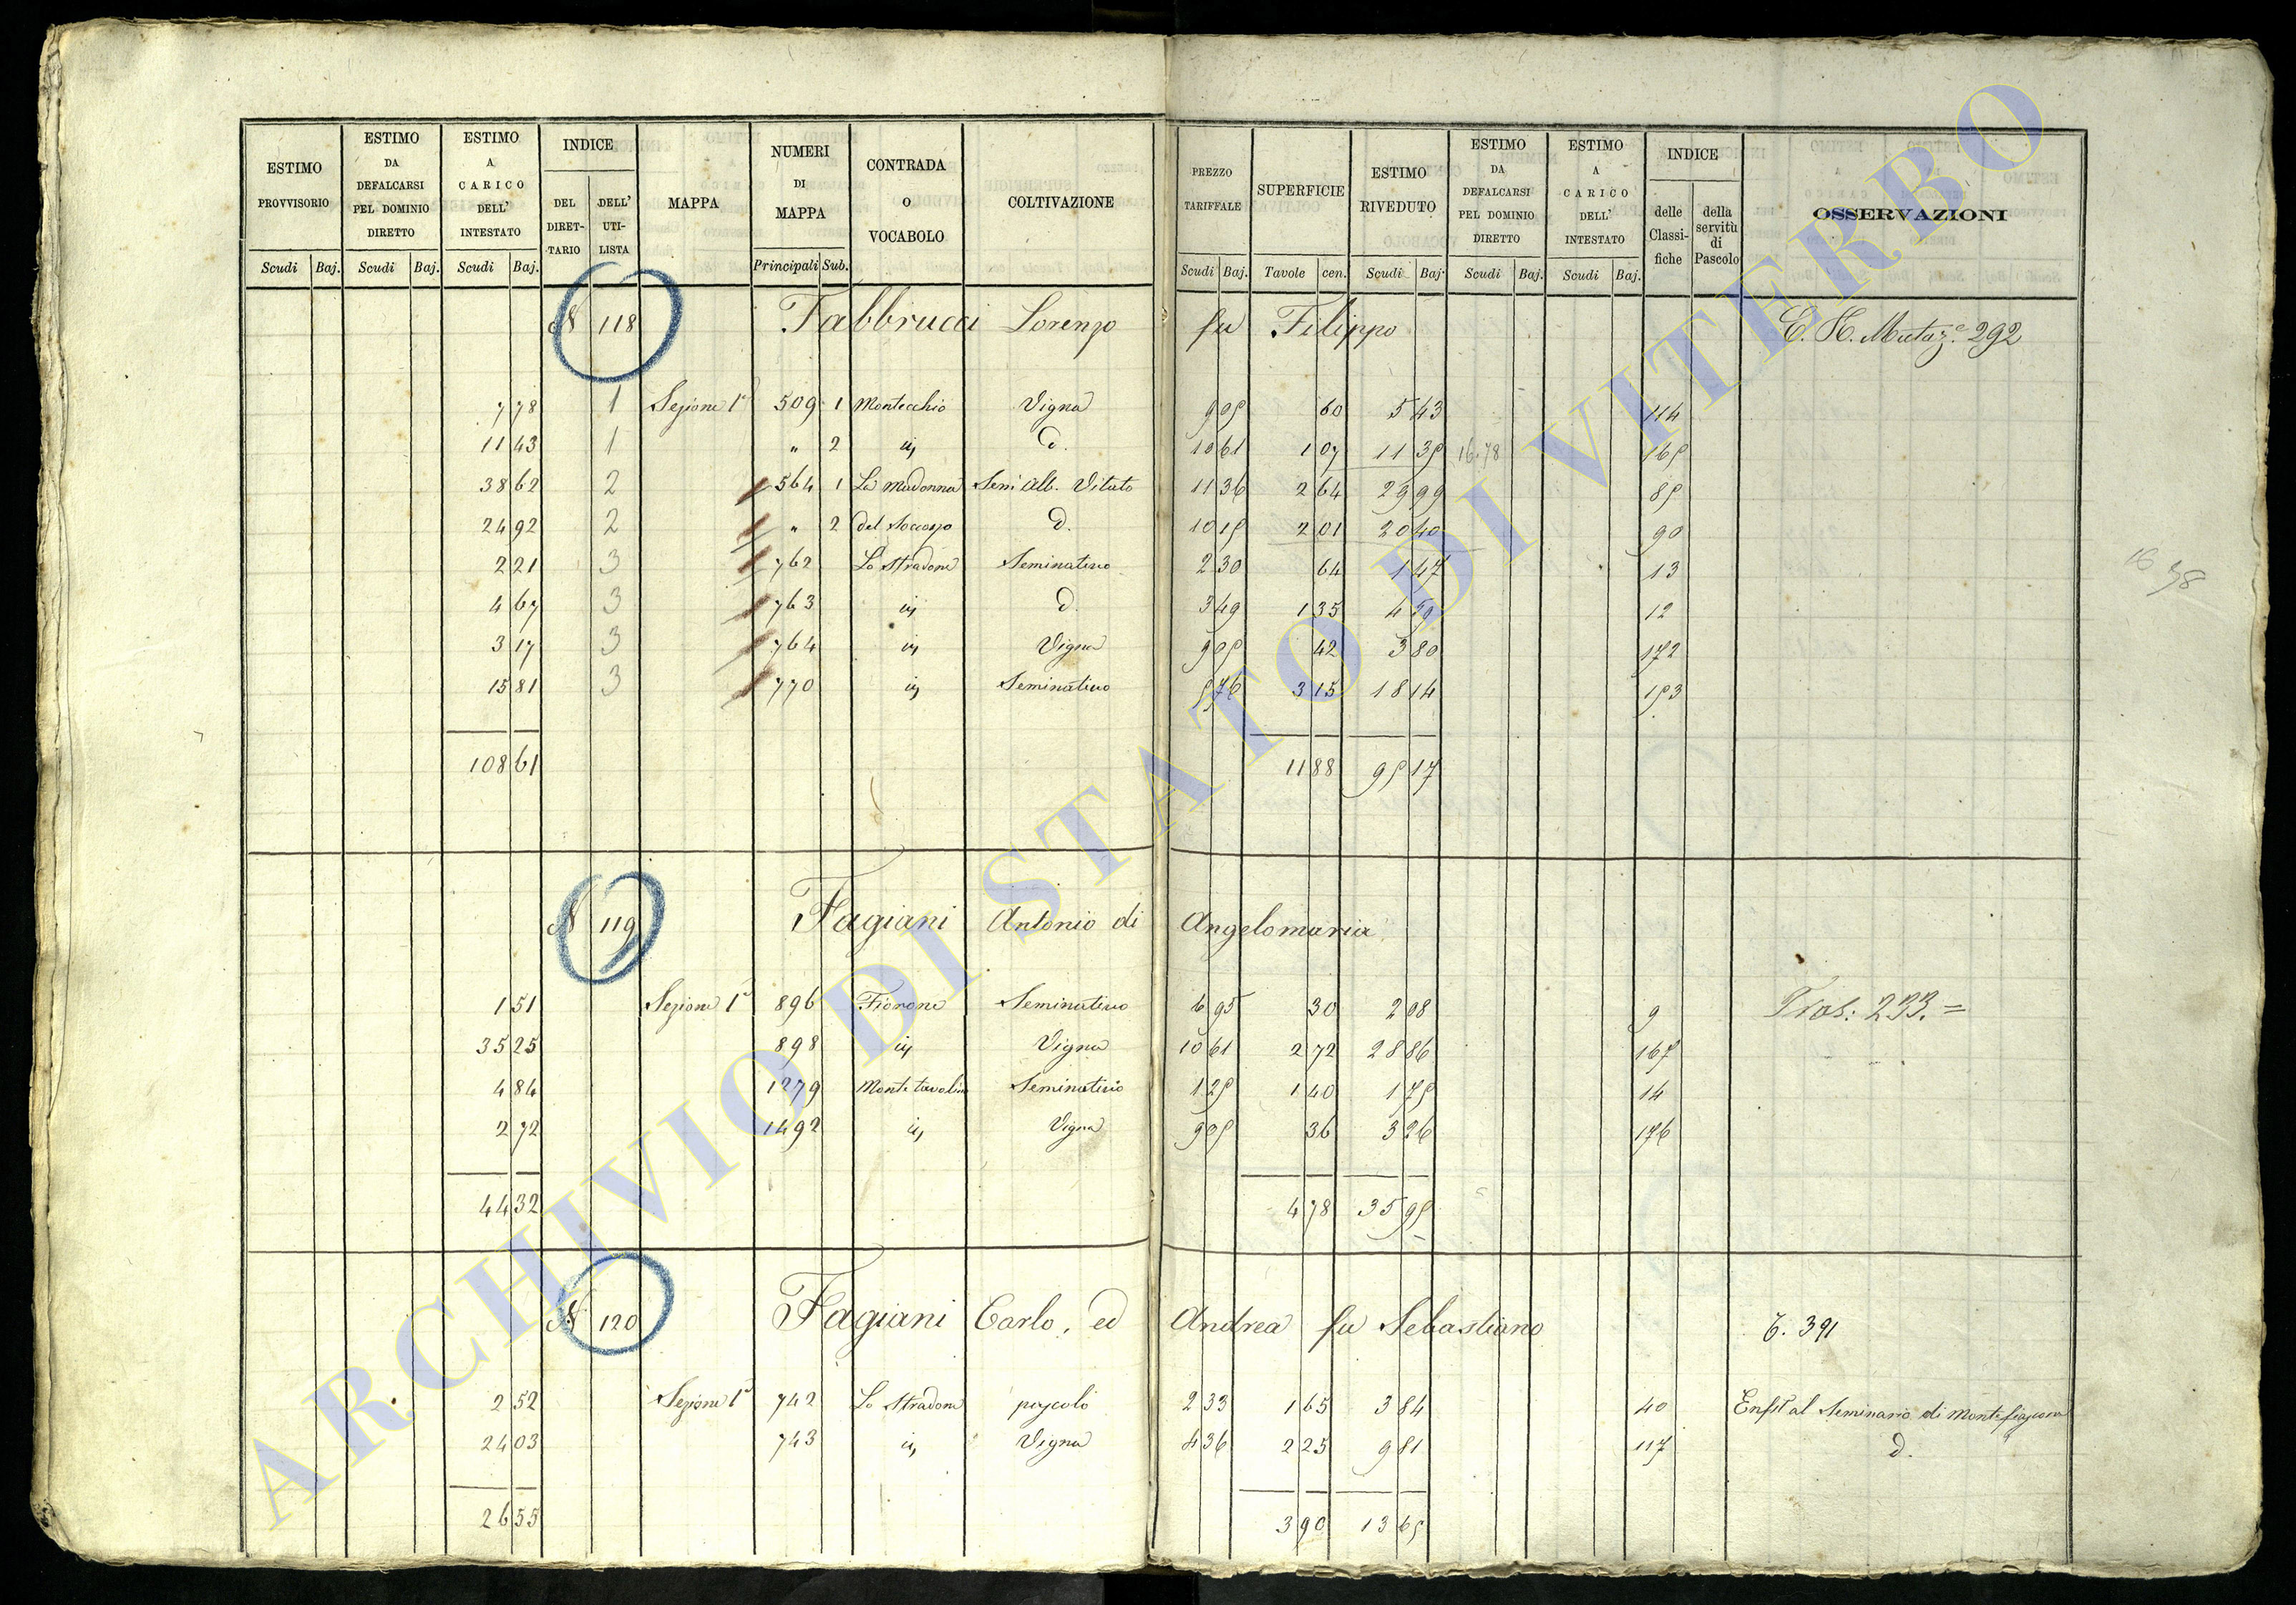 ESTIMO PROVVISORIO | ESTIMO DA DEFALCARSI PEL DOMINIO DIRETTO | ESTIMO A CARICO DELL' INTESTATO | INDICE DEL DIRETTARIO | DELL' UTILISTA | MAPPA | NUMERI DI MAPPA | CONTRADA O VOCABOLO | COLTIVAZIONE | PREZZO TARIFFALE | SUPERFICIE | ESTIMO RIVEDUTO | ESTIMO DA DEFALCARSI PEL DOMINIO DIRETTO | ESTIMO A CARICO DELL' INTESTATO | INDICE delle Classifiche | della servitù di Pascolo | OSSERVAZIONI
Scudi | Baj. | Scudi | Baj. | Scudi | Baj. | Principali | Sub. | Scudi | Baj. | Tavole | cen. | Scudi | Baj. | Scudi | Baj. | Scudi | Baj.
N 118 Fabbrucci Lorenzo fu Filippo
292
7 78 | 1 | Sezione 1ª | 509 | 1 | Montecchio | Vigna | 9 05 | 60 | 5 43 | 114
11 43 | 1 | " | 2 | iij | d. | 10 61 | 1 07 | 11 35 | 16.78 | 165
38 62 | 2 | 564 | 1 | La Madonna | Sem. Alb. Vitato | 11 36 | 2 64 | 29 99 | 85
24 92 | 2 | " | 2 | del Soccorso | d. | 10 15 | 2 01 | 20 40 | 90
2 21 | 3 | 762 | Lo Stradone | Seminativo | 2 30 | 64 | 1 47 | 13
4 67 | 3 | 763 | iij | d. | 3 49 | 1 35 | 12
3 17 | 3 | 764 | iij | Vigna | 9 05 | 42 | 3 80 | 172
15 81 | 3 | 770 | iij | Seminativo | 5 76 | 3 15 | 18 14 | 153
16 78
108 61 | 11 88 | 95 17
N 119 Fagiani Antonio di Angelomaria
1 51 | Sezione 1ª | 896 | Fiorone | Seminativo | 6 95 | 30 | 2 08 | 9 | 233. =
35 25 | 898 | iij | Vigna | 10 61 | 2 72 | 28 86 | 167
4 84 | 1279 | Seminativo | 1 25 | 1 40 | 1 75 | 14
2 72 | 1492 | iij | Vigna | 9 05 | 36 | 3 26 | 176
44 32 | 4 78 | 35 95
N 120 Fagiani Carlo, ed Andrea fu Sebastiano
T. 391
2 52 | Sezione 1ª | 742 | Lo Stradone | pascolo | 2 33 | 1 65 | 3 84 | 40 | Enfit. al Seminario di Montefiascone
24 03 | 743 | iij | Vigna | 4 36 | 2 25 | 9 81 | 117 | d.
26 55 | 3 90 | 13 65
ARCHIVIO DI STATO DI VITERBO